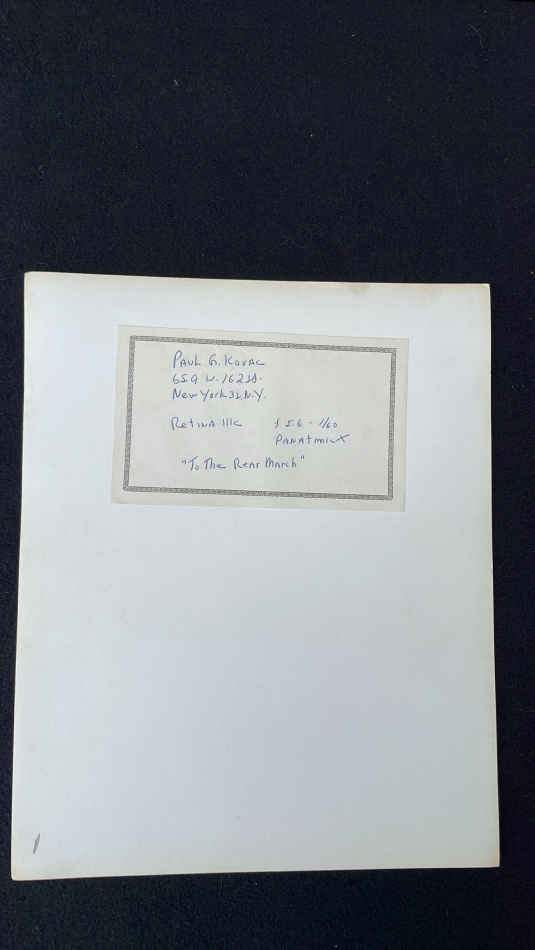 PAUL G. KOVAC
659 W. 162 St.
New York 32, N.Y.
Retina IIIc f 5.6 - 1/60
PANATMIC X
"To The Rear March"